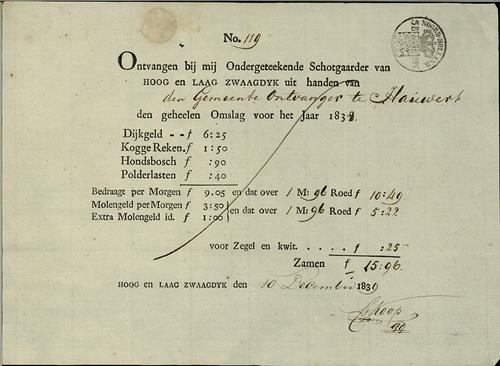 No. 119
NOORD-HOLLAND
Ontvangen bij mij Ondergeteekende Schotgaarder van
HOOG EN LAAG ZWAAGDYK uit handen van
den Gemeente Ontvanger te Hauwert
den geheelen Omslag voor het Jaar 1839.
Dijkgeld - - f 6:25
Kogge Reken. f 1:50
Hondsbosch f :90
Polderlasten f :40
Bedraagt per Morgen f 9.05 en dat over 1 M: 96 Roed f 10:49
Molengeld per Morgen f 3:50
Extra Molengeld id. f 1:00 } en dat over 1 M: 96 Roed f 5:22
voor Zegel en kwit. . . . . f :25
Zamen f 15:96.
HOOG EN LAAG ZWAAGDYK den 10 December 1839
Koop